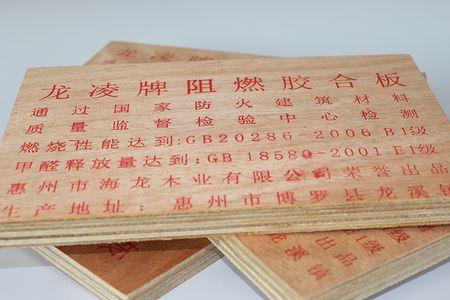 龙凌牌阻燃胶合板
通过国家防火建筑材料
质量监督检验中心检测
燃烧性能达到:GB20286-2006 B1级
甲醛释放量达到:GB 18580-2001 E1级
惠州市海龙木业有限公司荣誉出品
生产地址: 惠州市博罗县龙溪镇
出品
龙溪镇